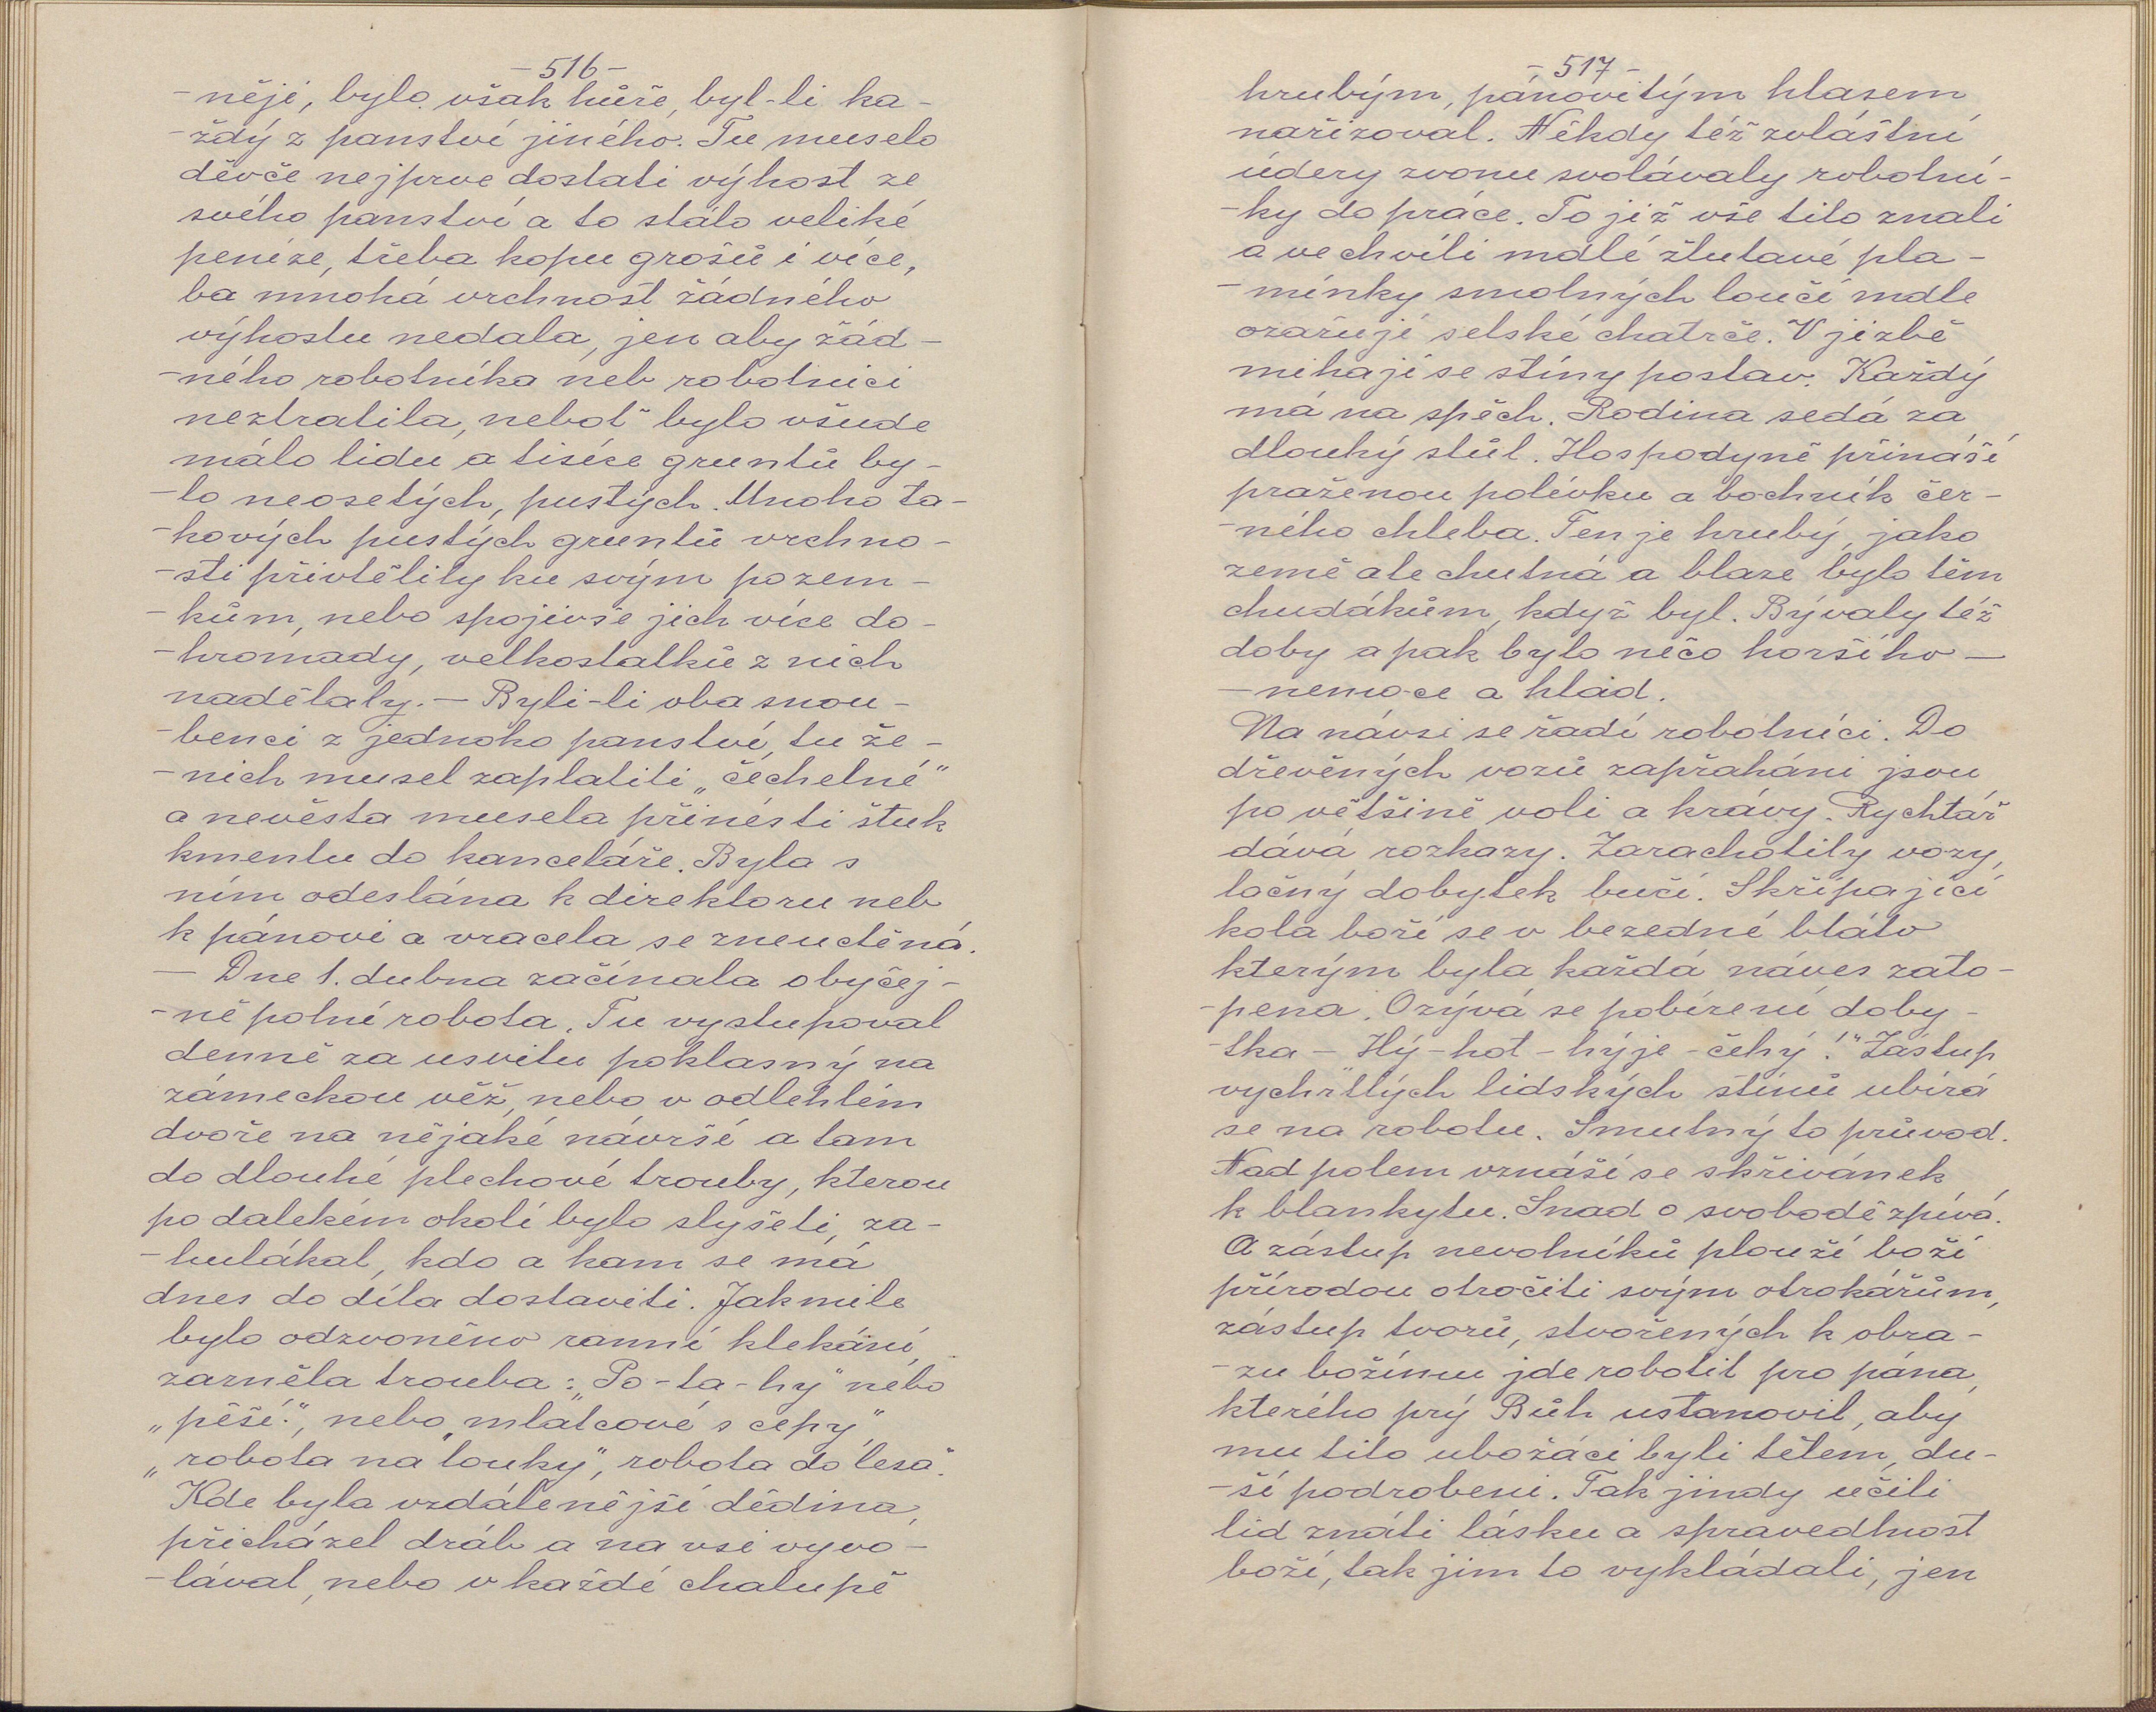 - 516 -
- něji, bylo však hůře, byl-li ka-
- ždý z panství jiného. Tu muselo
děvče nejprve dostati výhost ze
svého panství a to stálo veliké
peníze, třeba kopu grošů i více,
ba mnohá vrchnost žádného
výhostu nedala, jen aby žád-
- ného robotníka neb robotnici
neztratila, neboť bylo všude
málo lidu a tisíce gruntů by-
- lo neosetých, pustých. Mnoho ta-
- kových pustých gruntů vrchno-
- sti přivtělily ku svým pozem-
- kům, nebo spojivše jich více do-
- hromady, velkostatků z nich
nadělaly. - Byli-li oba snou-
- benci z jednoho panství, tu že-
- nich musel zaplatiti „čechelné"
a nevěsta musela přinésti štuk
kmentu do kanceláře. Byla s
ním odeslána k direktoru neb
k pánovi a vracela se zneuctěná.
- Dne 1. dubna začínala obyčej-
- ně polní robota. Tu vystupoval
denně za usvitu poklasný na
zámeckou věž, nebo v odlehlém
dvoře na nějaké návrší a tam
do dlouhé plechové trouby, kterou
po dalekém okolí bylo slyšeti, za-
- hulákal, kdo a kam se má
dnes do díla dostaviti. Jakmile
bylo odzvoněno ranní klekání,
zarněla trouba: „Po-ta-hy" nebo
„pěší.", nebo „mlatcové s cepy",
„robota na louky", robota do lesa".
Kde byla vzdálenější dědina,
přicházel dráb a na vsi vyvo-
- lával, nebo v každé chalupě
- 517 -
hrubým, pánovitým hlasem
nařizoval. Někdy též zvláštní
údery zvonu svolávaly robotní-
- ky do práce. To již vše tito znali
a ve chvíli mdlé žlutavé pla-
- mínky smolných loučí mdle
ozařují selské chatrče. V jizbě
mihají se stíny postav. Každý
má na spěch. Rodina sedá za
dlouhý stůl. Hospodyně přináší
praženou polévku a bochník čer-
- ného chleba. Ten je hrubý, jako
země ale chutná a blaze bylo těm
chudákům, když byl. Bývaly též
doby a pak bylo něčo horšího -
- nemoce a hlad.
Na návsi se řadí robotníci. Do
dřevěných vozů zapřaháni jsou
po většině voli a krávy. Rychtář
dává rozkazy. Zarachotily vozy,
lačný dobytek bučí. Skřípající
kola boří se v bezedné bláto
kterým byla každá náves zato-
- pena. Ozývá se pobízení doby-
- tka - Hý - hot - hýje - čehý!" Zástup
vychrtlých lidských stínů ubírá
se na robotu. Smutný to průvod.
Nad polem vznáší se skřivánek
k blankytu. Snad o svobodě zpívá.
A zástup nevolníků plouží boží
přírodou otročiti svým otrokářům,
zástup tvorů, stvořených k obra-
- zu božímu jde robotit pro pána,
kterého prý Bůh ustanovil, aby
mu tito ubožáci byli tělem, du-
- ší podrobeni. Tak jindy učili
lid znáti lásku a spravedlnost
boží, tak jim to vykládali, jen